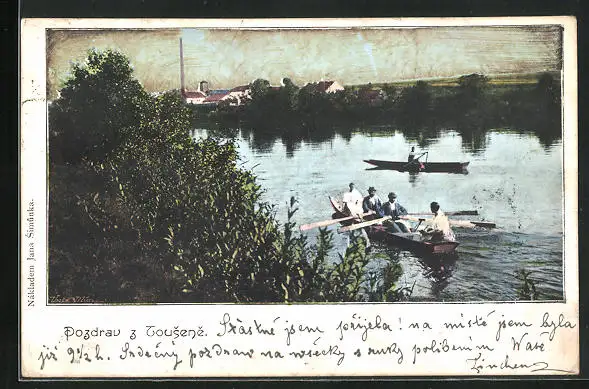 Nákladem Jana Šimůnka.
Pozdrav z Toušeně. Šťástně jsem přijela! na místě jsem byla
již 9½ h. Srdečný pozdrav na všecky s ruky políbením Vaše